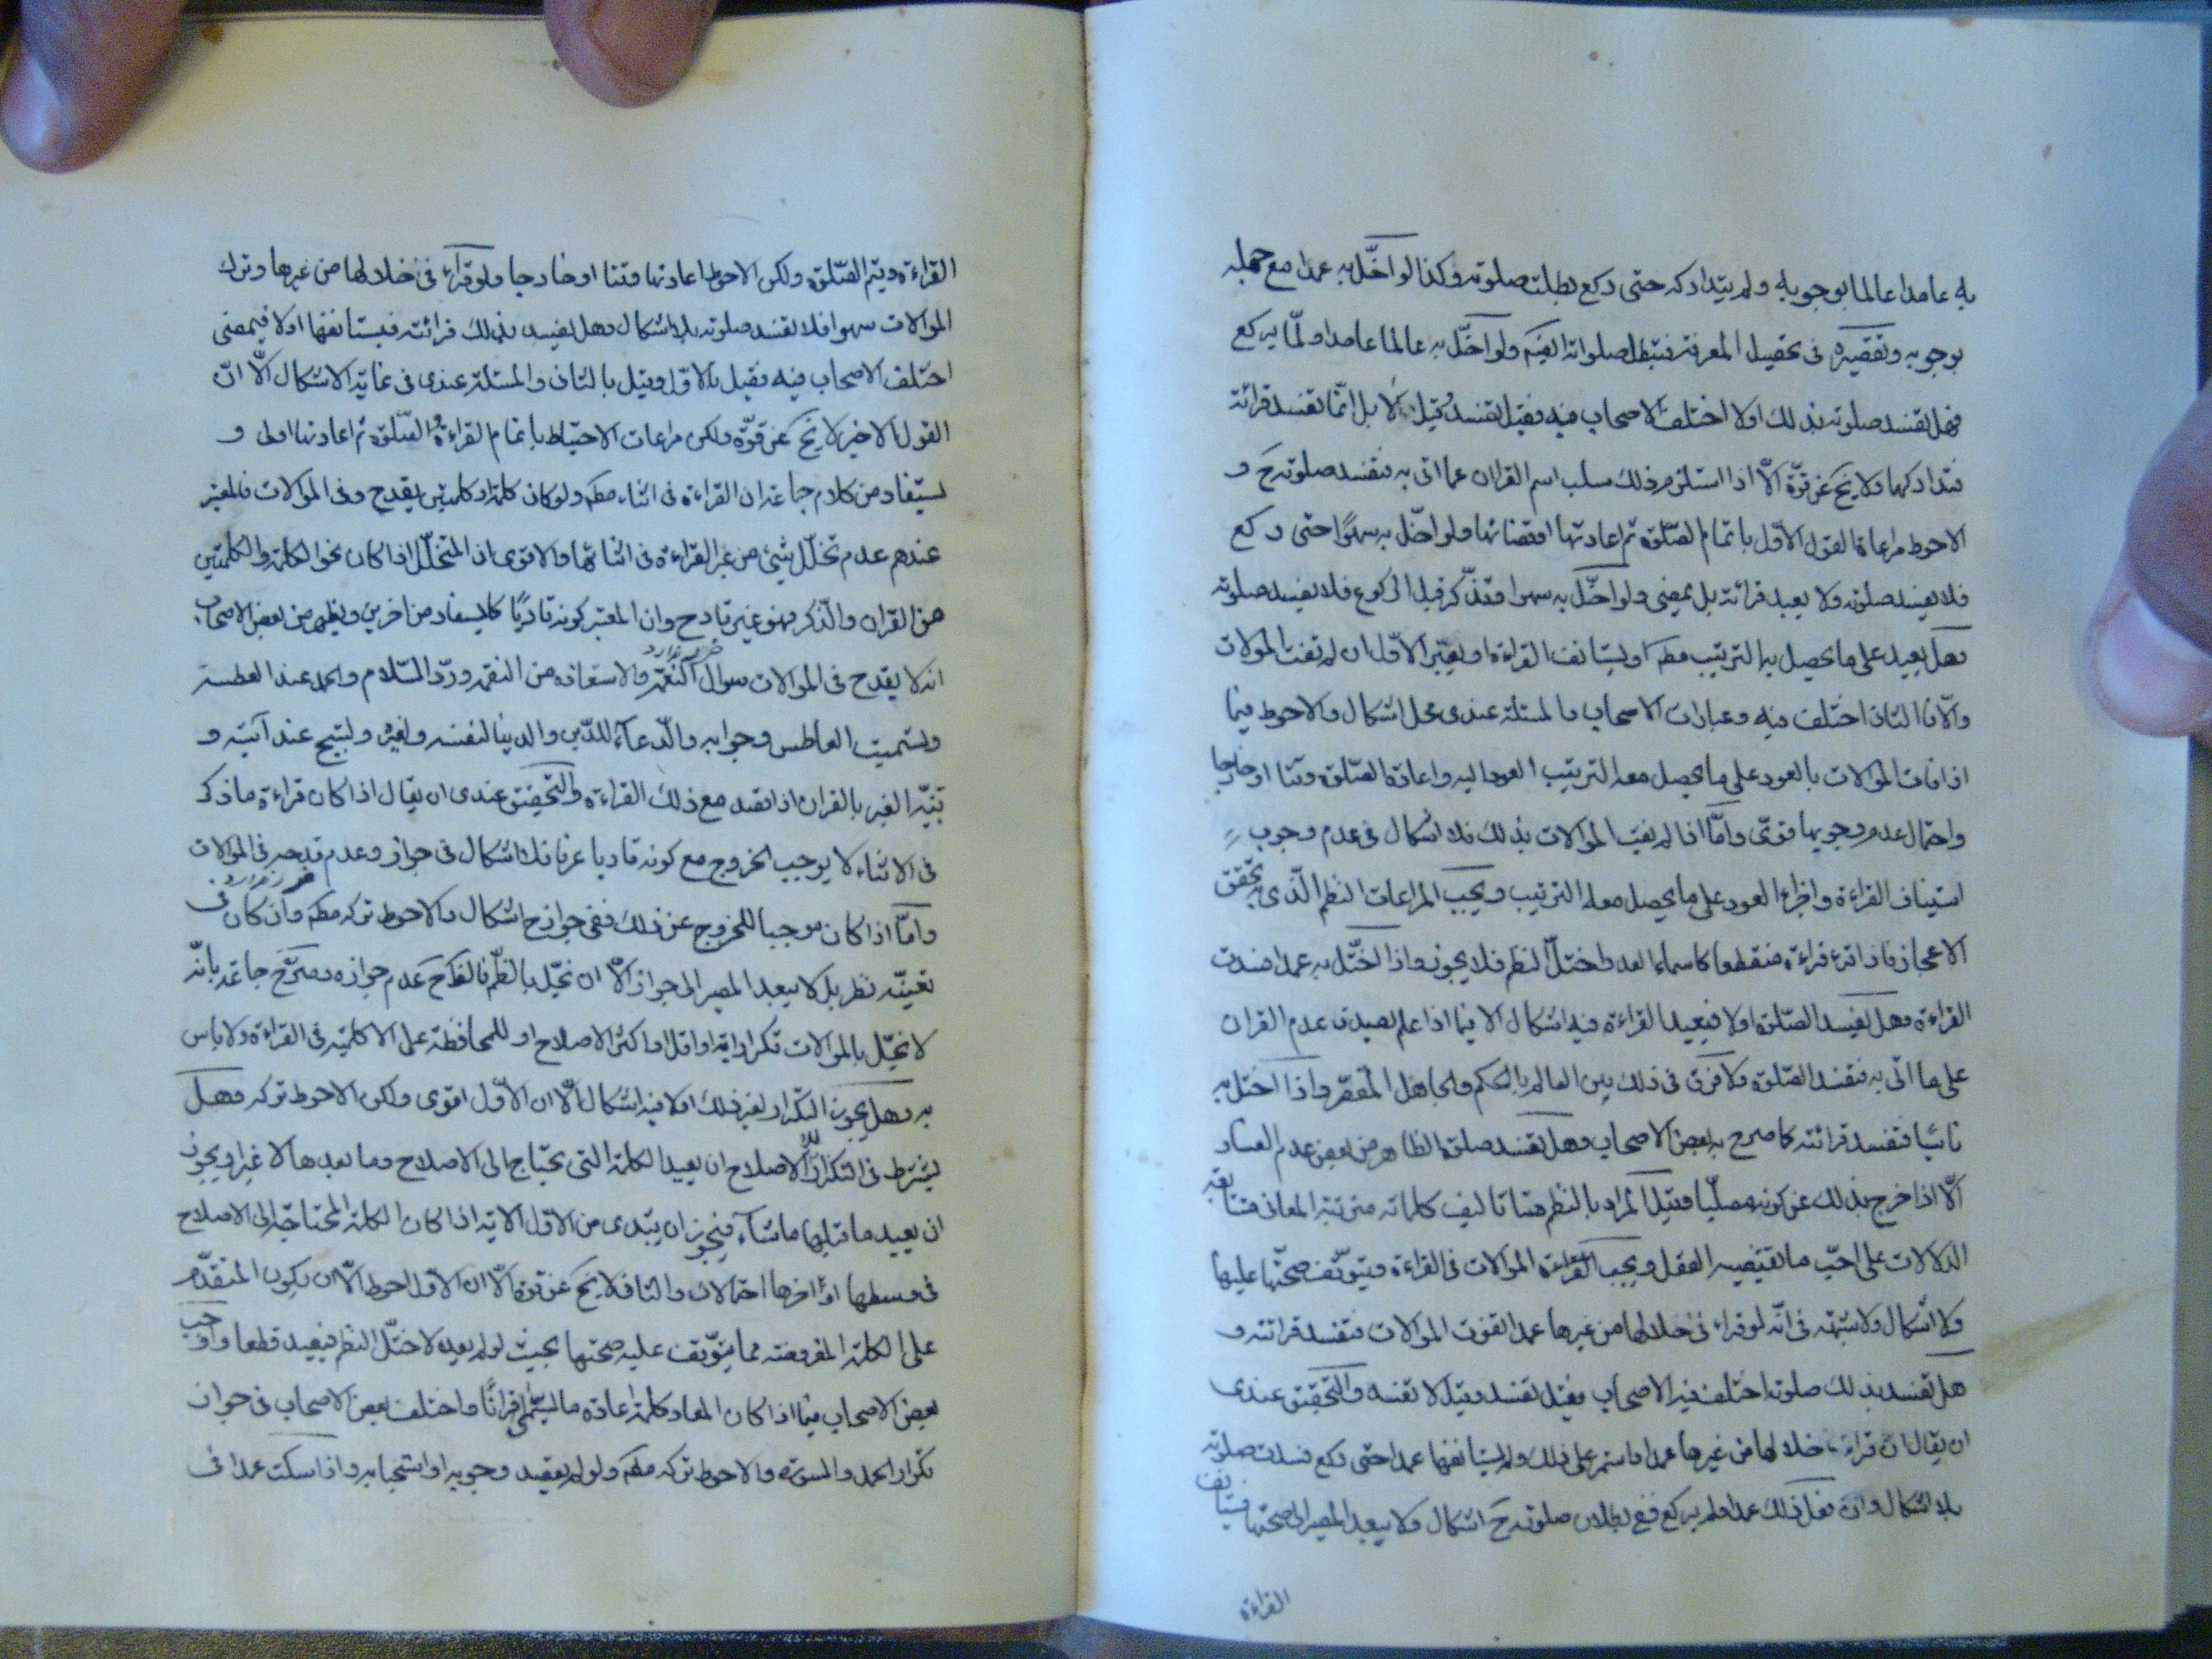 به عامدا عالما بوجوبه ولم يتداركه حتى ركع بطلت صلوته وكذا لو اخلّ به عمدا مع جهله
بوجوبه وتقصيره فى تحصيل المعرفة فتبطل صلواته ايضا ولو اخلّ به عالما عامدا ولمّا يركع
فهل تفسد صلوته بذلك اولا اختلف الاصحاب فيه فقيل تفسد وقيل لا بل انّما تفسد قرائته
فتداركها ولا يخ عن قوّة الّا اذا استلزم ذلك سلب اسم القران عما اتى به فتفسد صلوته ح و
الاحوط مراعاة القول الاوّل باتمام الصّلوة ثم اعادتها اوقضائها ولو اخلّ به سهوًا حتى ركع
فلا يفسد صلوته ولا يعيد قرائته بل يمضى ولو اخلّ به سهوا فتذكّر قبل الركوع فلا يفسد صلوته
وهل يعيد على ما يحصل به الترتيب مطم او يستانف القراءة او يعتبر الاوّل ان لم تفت الموالات
والّا فالثانى اختلف فيه وعبارات الاصحاب والمسئلة عندى محل اشكال والاحوط فيما
اذا فات الموالات بالعود على ما يحصل معه الترتيب العود اليه واعادة الصّلوة وقتا او خارجا
واحتمال عدم وجوبها قوىّ وامّا اذا لم يفت الموالات بذلك فلا اشكال فى عدم وجوب
استيناف القراءة واجزاء العود على ما يحصل معه الترتيب ويجب المراعات النظم الّذى به يتحقق
الاعجاز فاذا قرء قراءة منقطعا كاسماء العدد واختلّ النظم فلا يجوز واذا اختّل به عمدا فسدت
القراءة وهل يفسد الصّلوة اولا فيعيد القراءة فيه اشكال الا فيما اذا علم بصدق عدم القران
على ما اتى به فتفسد الصّلوة ولا فرق فى ذلك بين العالم بالحكم والجاهل المقصّر واذا اختل به
ناسيًا فتفسد قرائته كما صرح به بعض الاصحاب وهل تفسد صلوة الظاهر من بعض عدم الفساد
الّا اذا خرج بذلك عن كونه مصلّيا وقيل المراد بالنظم هنا تاليف كلماته مترتبة المعانى متناسقة
الدلالات على احب ما يقتضيه العقل ويجب الموالات فى القراءة ويتوقّف صحّتها عليها
ولا اشكال ولا شبهة فى انّه لو قراء فى خلالها من غيرها عمدا تفوت الموالات فتفسد قرائته و
هل تفسد بذلك صلوته اختلف فيه الاصحاب فقيل تفسد وقيل لا تفسد والتحقيق عندى
ان يقال ان قراءة خلالها من غيرها عمدا واستمر على ذلك ولم يستانفها عمدا حتى ركع فسدت صلوته
بلا اشكال وان فعل ذلك عمدا ولم يركع ففى بطلان صلوته ح اشكال ولا يبعد المصير الى صحتها فيستانف
القراءة
القراءة ويتم الصّلوة ولكن الاحوط اعادتها وقتا او خارجا ولو قراء فى خلالها من غيرها وترك
الموالات سهوا فلا تفسد صلوته بلا اشكال وهل يفسد بذلك قرائته فيستانفها اولا فيمضى
اختلف الاصحاب فيه فقيل بالاوّل وقيل بالثانى والمسئلة عندى فى غاية الاشكال الّا انّ
القول الاخير لا يخ عن قوّة ولكن مراعات الاحتياط باتمام القراءة و الصّلوة ثم اعادتها اولى و
يستفاد من كلام جماعة ان القراءة فى اثناء مطم ولو كان كلمة او كلمتين يقدح وفى الموالات فالمعتبر
عندهم عدم تخلّل شيئ من غير القراءة فى اثنائها والاقوى ان المتخلّل اذا كان نحو الكلمة والكلمتين
من القران والّذكر فهو غير قادح وان المعتبر كونه قاديًا كما يستفاد من اخرين ويظهر من بعض الاصحاب
انه لا يقدح فى الموالات سوال النقمة والاستعاذه من النقمه وردّ السّلام والحمد عند العطسة
وتسميت العاطس وجوابه والّدعاء للدّين والدينا لنفسه ولغيره ولتبيح عند آتيه و
تنبّه الغير بالقران اذا قصد مع ذلك القراءة والتّحقيق عندى ان يقال اذا كان قراءة ما ذكر
فى الاثناء لا يوجب الخروج مع كونه قاديا عرفا فلا اشكال فى جوازه وعدم قدحه فى الموالات
وامّا اذا كان موجبا للخروج عن ذلك ففى جوازه ح اشكال والاحوط تركه مطم وان كان فى
تعينّه نظر بل لا يبعد المصير الى جوازه الّا ان يخّل بالنظّم فالفكح عدم جوازه وصرّح جماعة بانّه
لا يخّل بالموالات تكرار اية او اقل او اكثر للاصلاح او للمحافظة على الاكلمية فى القراءة ولا باس
به وهل يجوز التكرار لغير ذلك اولا فيه اشكال الّا ان الاوّل اقوى ولكن الاحوط تركه وهل
يشترط فى التكرار للاصلاح ان يعيد الكلمة التى يحتاج الى الاصلاح وما بعدها لا غير او يجوز
ان يعيد ما قبلها ما شاء فيجوز ان يبتدى من الاوّل الاية اذا كان الكلمة المحتاجة الى الاصلاح
فى وسطها او اخرها احتمالان والثانى لا يخ عن قوة الّا ان الاوّل احوط الّا ان يكون المتقدّم
على الكلمة المفروضة مما يتوّقف عليه صحتها بحيث لو لم يعيده لاختّل النظم فيعيد قطعا واوجب
بعض الاصحاب فيما اذا كان المعاد كلمة اعادة ما يسمّى قرانًا واختلف بعض الاصحاب فى جواز
تكرار الحمد والسورة والاحوط تركه مطم ولو لم يعتقد وجوبه او استحبابه واذا سكت عمدا فى